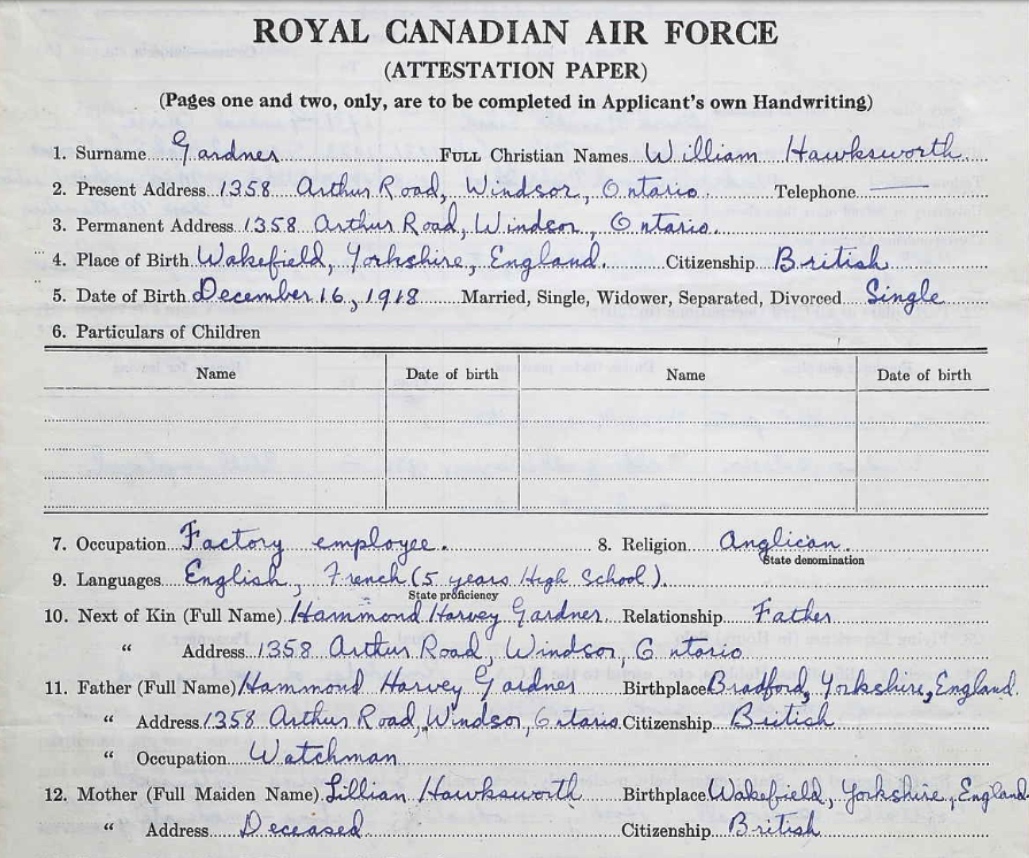 ROYAL CANADIAN AIR FORCE
(ATTESTATION PAPER)
(Pages one and two, only, are to be completed in Applicant's own Handwriting)
1. Surname Gardner FULL Christian Names William Hawksworth
2. Present Address 1358 Arthur Road, Windsor, Ontario. Telephone
3. Permanent Address 1358 Arthur Road, Windsor, Ontario.
4. Place of Birth Wakefield, Yorkshire, England. Citizenship British
5. Date of Birth December 16, 1918 Married, Single, Widower, Separated, Divorced Single
6. Particulars of Children
Name Date of birth Name Date of birth
7. Occupation Factory employee. 8. Religion Anglican.
State denomination
9. Languages English, French (5 years High School).
State proficiency
10. Next of Kin (Full Name) Hammond Harvey Gardner Relationship Father
" Address 1358 Arthur Road, Windsor, Ontario
11. Father (Full Name) Hammond Harvey Gardner Birthplace Bradford, Yorkshire, England.
" Address 1358 Arthur Road, Windsor, Ontario. Citizenship British
" Occupation Watchman
12. Mother (Full Maiden Name) Lillian Hawksworth Birthplace Wakefield, Yorkshire, England
" Address Deceased Citizenship British